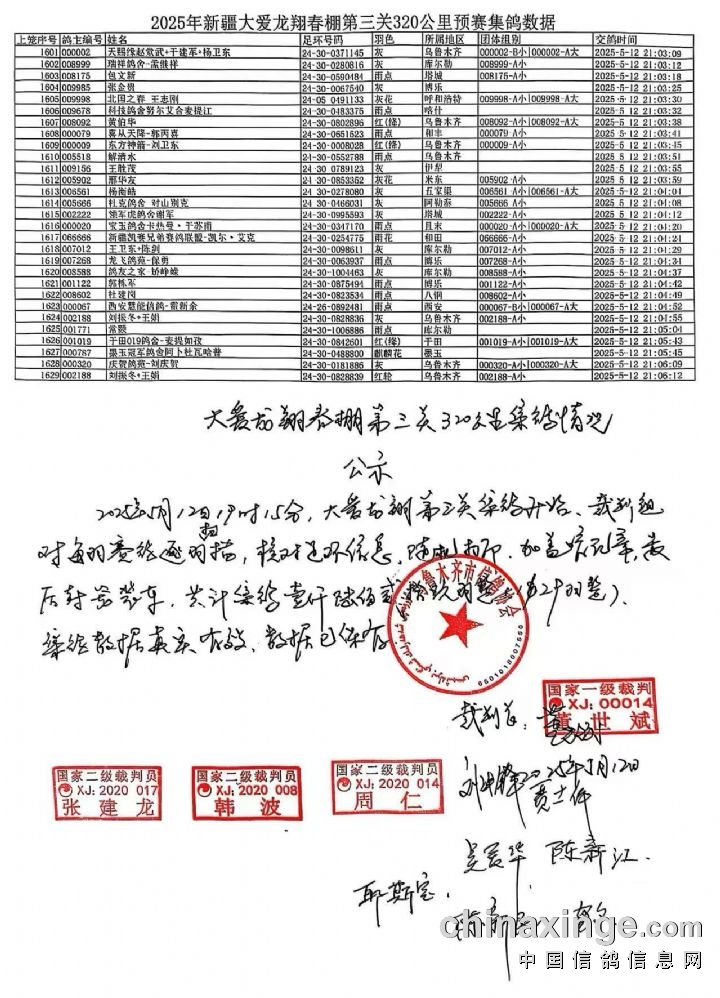 2025年新疆大爱龙翔春棚第三关320公里预赛集鸽数据
上笼序号 鸽主编号 姓名 足环号码 羽色 所属地区 团体组别 交鸽时间
1601 000002 天赐缘赵党武+于建军+杨卫东 24-30-0371145 灰 乌鲁木齐 000002-B小|000002-A大 2025-5-12 21:03:09
1602 008999 瑞祥鸽舍-孟继祥 24-30-0280816 灰 库尔勒 008999-A小 2025-5-12 21:03:12
1603 008175 包文新 24-30-0590484 雨点 塔城 008175-A小 2025-5-12 21:03:18
1604 009985 张金贵 24-30-0067540 灰 博乐 2025-5-12 21:03:25
1605 009998 北国之春 王志刚 24-05-0491133 灰花 呼和浩特 009998-A小|009998-A大 2025-5-12 21:03:30
1606 009678 科技鸽舍努尔艾合麦提江 24-30-0483375 雨点 喀什 2025-5-12 21:03:32
1607 008092 黄伯华 24-30-0802896 红(绛) 乌鲁木齐 008092-A小|008092-A大 2025-5-12 21:03:38
1608 000079 喜从天降-郭丙喜 24-30-0651523 雨点 和丰 000079-A小 2025-5-12 21:03:41
1609 000009 东方神箭-刘卫东 24-30-0008028 红(绛) 乌鲁木齐 000009-A小 2025-5-12 21:03:45
1610 005518 解清水 24-30-0552788 雨点 乌鲁木齐 2025-5-12 21:03:51
1611 009156 王胜茂 24-30-0789123 灰 伊犁 2025-5-12 21:03:55
1612 005902 邢华友 24-30-0853352 灰花 米东 005902-A小 2025-5-12 21:03:59
1613 006561 杨衡皓 24-30-0278080 灰 五家渠 006561-A小|006561-A大 2025-5-12 21:04:04
1614 005666 杜克鸽舍 对山别克 24-30-0466031 灰 阿勒泰 005666-A小 2025-5-12 21:04:08
1615 002222 领军虎鸽舍谢军 24-30-0995593 灰 塔城 002222-A小 2025-5-12 21:04:12
1616 000020 宝玉鸽舍卡热曼·于苏甫 24-30-0347170 雨点 且末 000020-A小|000020-A大 2025-5-12 21:04:20
1617 066666 新疆凯赛兄弟赛鸽联盟-凯尔·艾克 24-30-0254775 雨花 和田 066666-A小 2025-5-12 21:04:21
1618 007012 王卫东+陈剑 24-30-0098611 灰 库尔勒 007012-A小 2025-5-12 21:04:29
1619 007268 龙飞鸽苑-保勇 24-30-0063937 雨点 博乐 007268-A小 2025-5-12 21:04:34
1620 008588 鸽友之家-矫峥嵘 24-30-1004463 灰 库尔勒 008588-A小 2025-5-12 21:04:37
1621 001122 郭栋军 24-30-0875494 雨点 博乐 001122-A小 2025-5-12 21:04:42
1622 008602 杜建岗 24-30-0823534 雨点 八钢 008602-A小 2025-5-12 21:04:49
1623 000067 西安慧能信鸽-霍新余 24-26-0892481 雨点 西安 000067-B小|000067-A大 2025-5-12 21:04:52
1624 002188 刘振冬+王娟 24-30-0828836 灰 乌鲁木齐 002188-A小 2025-5-12 21:04:55
1625 001771 常毅 24-30-1006886 雨点 库尔勒 2025-5-12 21:05:04
1626 001019 于田019鸽舍-麦提如孜 24-30-0842601 红(绛) 于田 001019-A小|001019-A大 2025-5-12 21:05:43
1627 000787 墨玉冠军鸽舍阿卜杜瓦哈普 24-30-0488800 麒麟花 墨玉 2025-5-12 21:05:45
1628 000320 庆贺鸽苑-刘庆贺 24-30-0181886 灰 乌鲁木齐 000320-A小|000320-A大 2025-5-12 21:06:09
1629 002188 刘振冬+王娟 24-30-0828839 红轮 乌鲁木齐 002188-A小 2025-5-12 21:06:12
大爱龙翔春棚第三关320公里集鸽情况
公示
2025年5月12日19时15分,大爱龙翔第三关集鸽开始、裁判组
对每羽赛鸽逐羽扫描,核对足环信息,随机加印、加盖暗记章,最
后封笼装车,共计集鸽壹仟陆佰贰拾玖羽整(1629羽整)。
集鸽数据真实有效、数据已保存
乌鲁木齐市信鸽协会
裁判长:董世斌
国家一级裁判
XJ:00014
董世斌
2025年5月12日
国家二级裁判员
XJ:2020 017
张建龙
国家二级裁判员
XJ:2020 008
韩波
国家二级裁判员
XJ:2020 014
周仁
黄士伟
吴爱华 陈新江
耶斯宝
chinaxinge.com
中国信鸽信息网